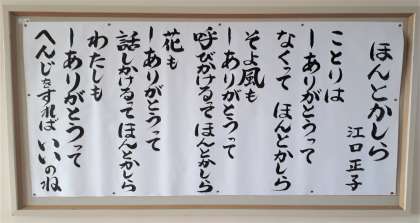 ほんとかしら
江口 正子
ことりは
ーありがとうって
なくって ほんとかしら
そよ風も
ーありがとうって
呼びかけるって ほんとかしら
花も
ーありがとうって
話しかけるって ほんとかしら
わたしも
ーありがとうって
へんじをすれば いいのね